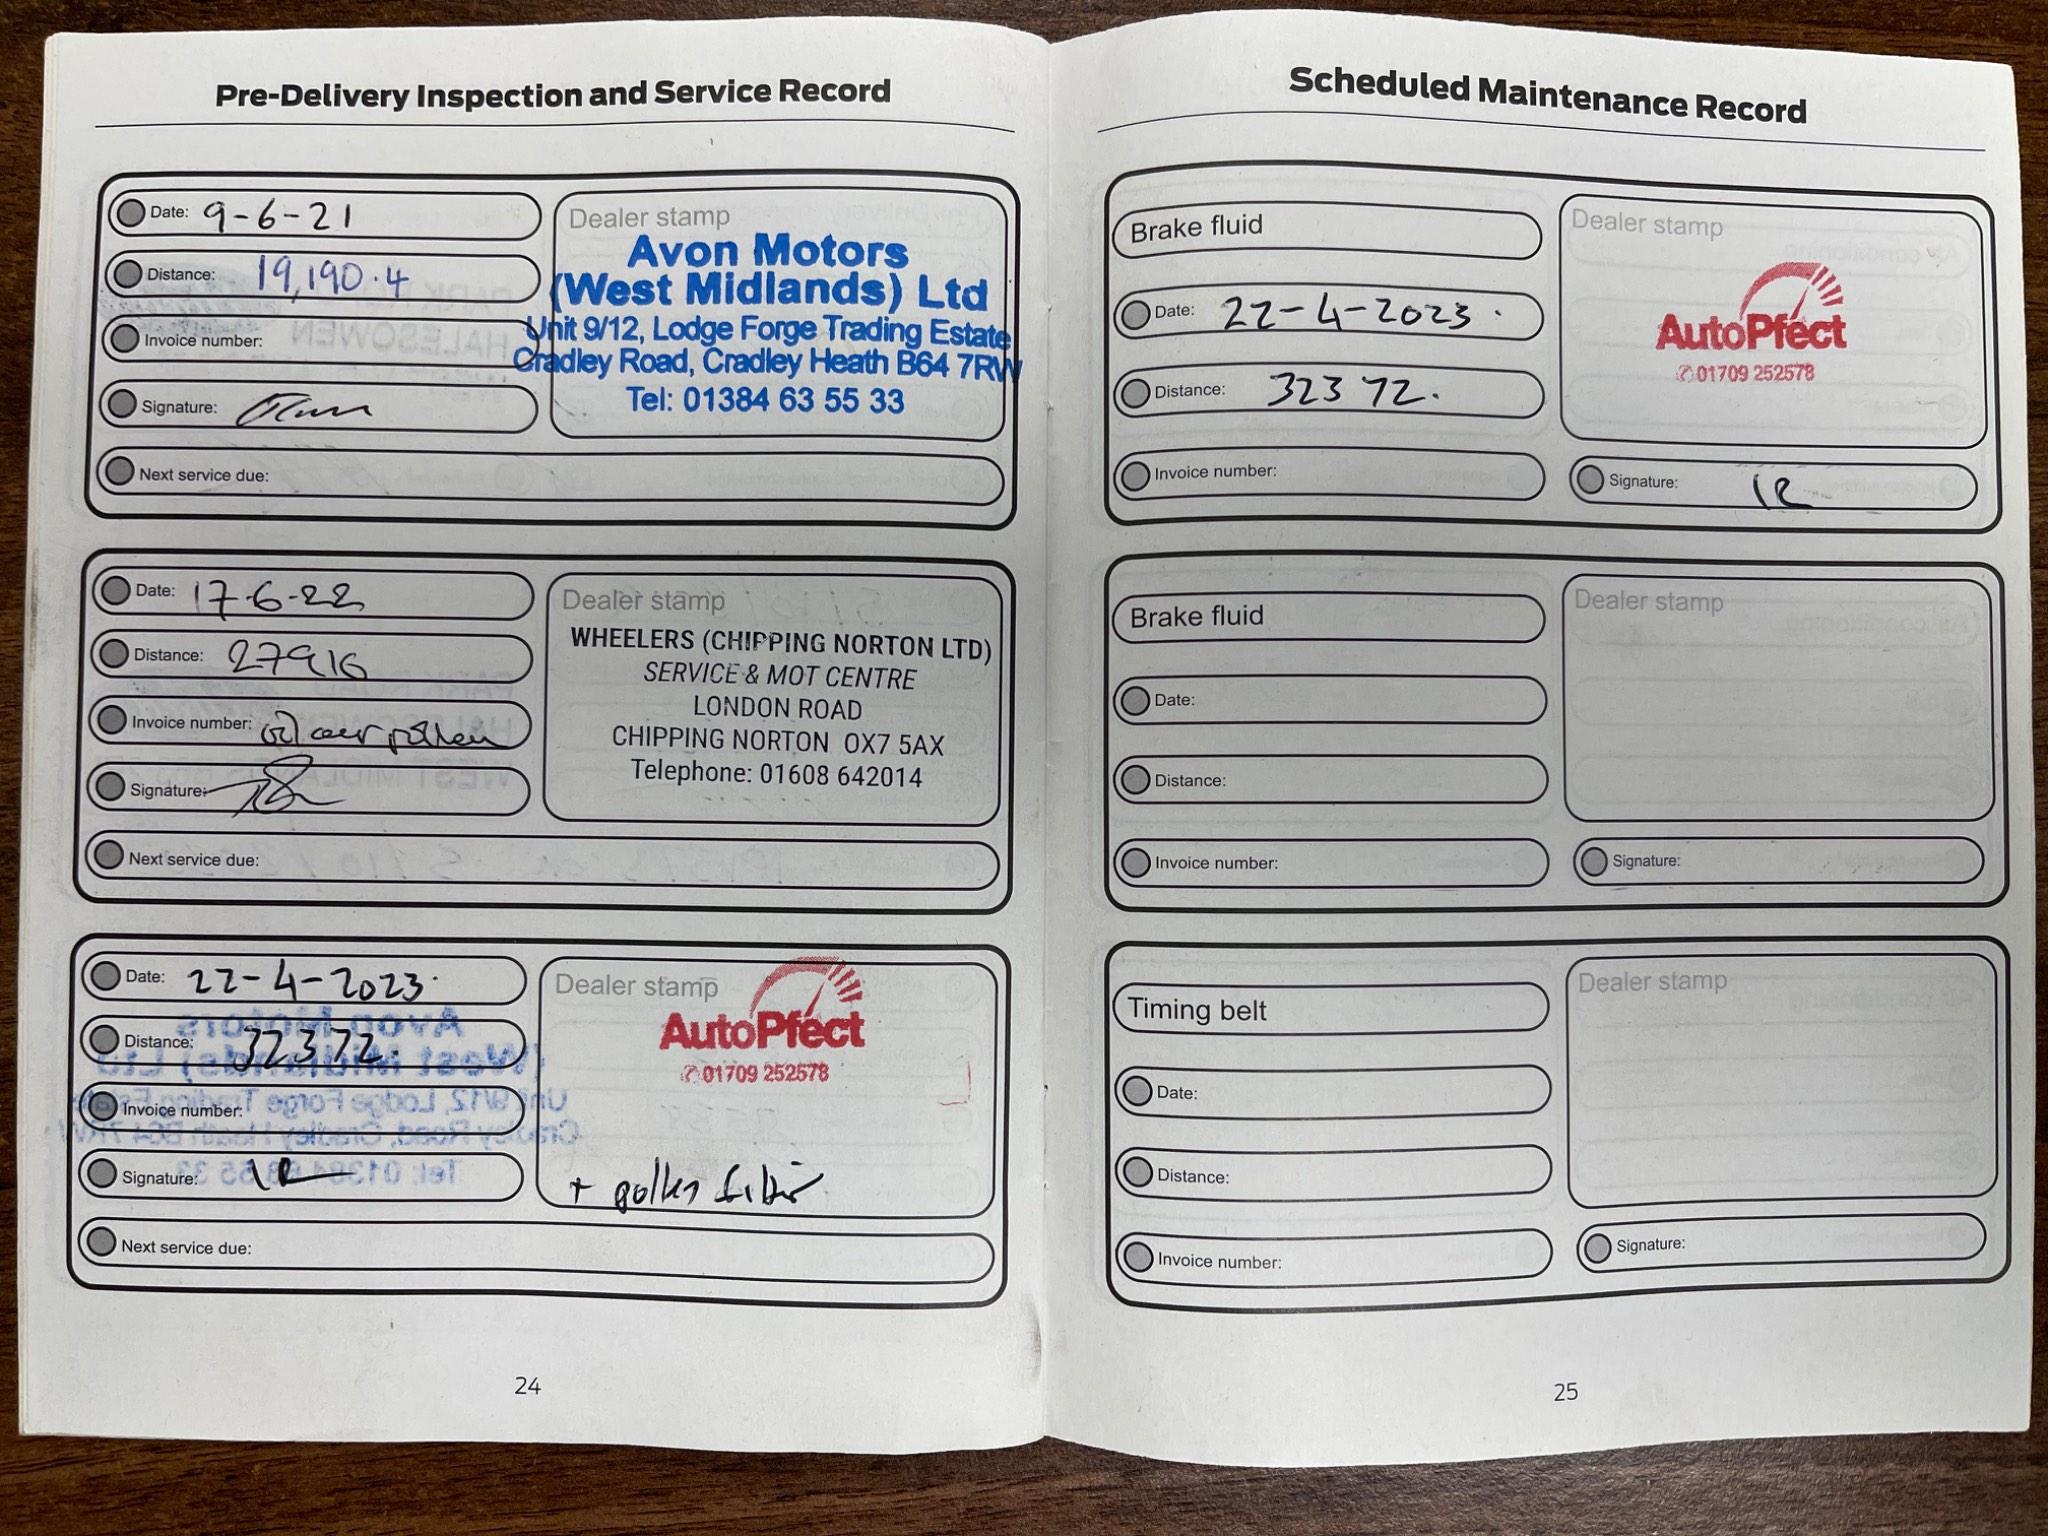 Pre-Delivery Inspection and Service Record
Date: 9-6-21
Distance: 19,190.4
Invoice number:
Signature:
Next service due:
Dealer stamp
Avon Motors
(West Midlands) Ltd
Unit 9/12, Lodge Forge Trading Estate
Cradley Road, Cradley Heath B64 7RW
Tel: 01384 63 55 33
Date: 17-6-22
Distance: 27916
Invoice number: oil air pollen
Signature:
Next service due:
Dealer stamp
WHEELERS (CHIPPING NORTON LTD)
SERVICE & MOT CENTRE
LONDON ROAD
CHIPPING NORTON OX7 5AX
Telephone: 01608 642014
Date: 22-4-2023.
Distance: 32372.
Invoice number:
Signature:
Next service due:
Dealer stamp
AutoPfect
✆ 01709 252578
+ pollen filter
24
Scheduled Maintenance Record
Brake fluid
Date: 22-4-2023.
Distance: 32372.
Invoice number:
Dealer stamp
AutoPfect
✆ 01709 252578
Signature:
Brake fluid
Date:
Distance:
Invoice number:
Dealer stamp
Signature:
Timing belt
Date:
Distance:
Invoice number:
Dealer stamp
Signature:
25